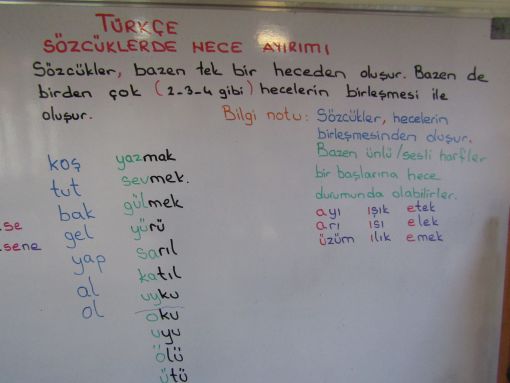 TÜRKÇE
SÖZCÜKLERDE HECE AYIRIMI
Sözcükler, bazen tek bir heceden oluşur. Bazen de
birden çok (2-3-4 gibi) hecelerin birleşmesi ile
oluşur.
Bilgi notu: Sözcükler, hecelerin
birleşmesinden oluşur.
Bazen ünlü/sesli harfler
bir başlarına hece
durumunda olabilirler.
ayı ışık etek
arı ısı elek
üzüm ılık emek
koş
tut
bak
gel
yap
al
ol
yazmak
sevmek.
gülmek
yürü
sarıl
katıl
uyku
oku
uyu
ölü
ütü
se
sene